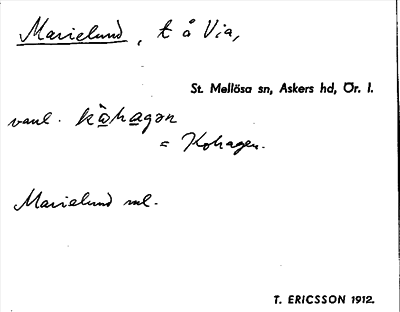 Marielund, t å Via,
St. Mellösa sn, Askers hd, Ör. l.
vanl. kòhagən
= Kohagen.
Marielund ml.
T. ERICSSON 1912.